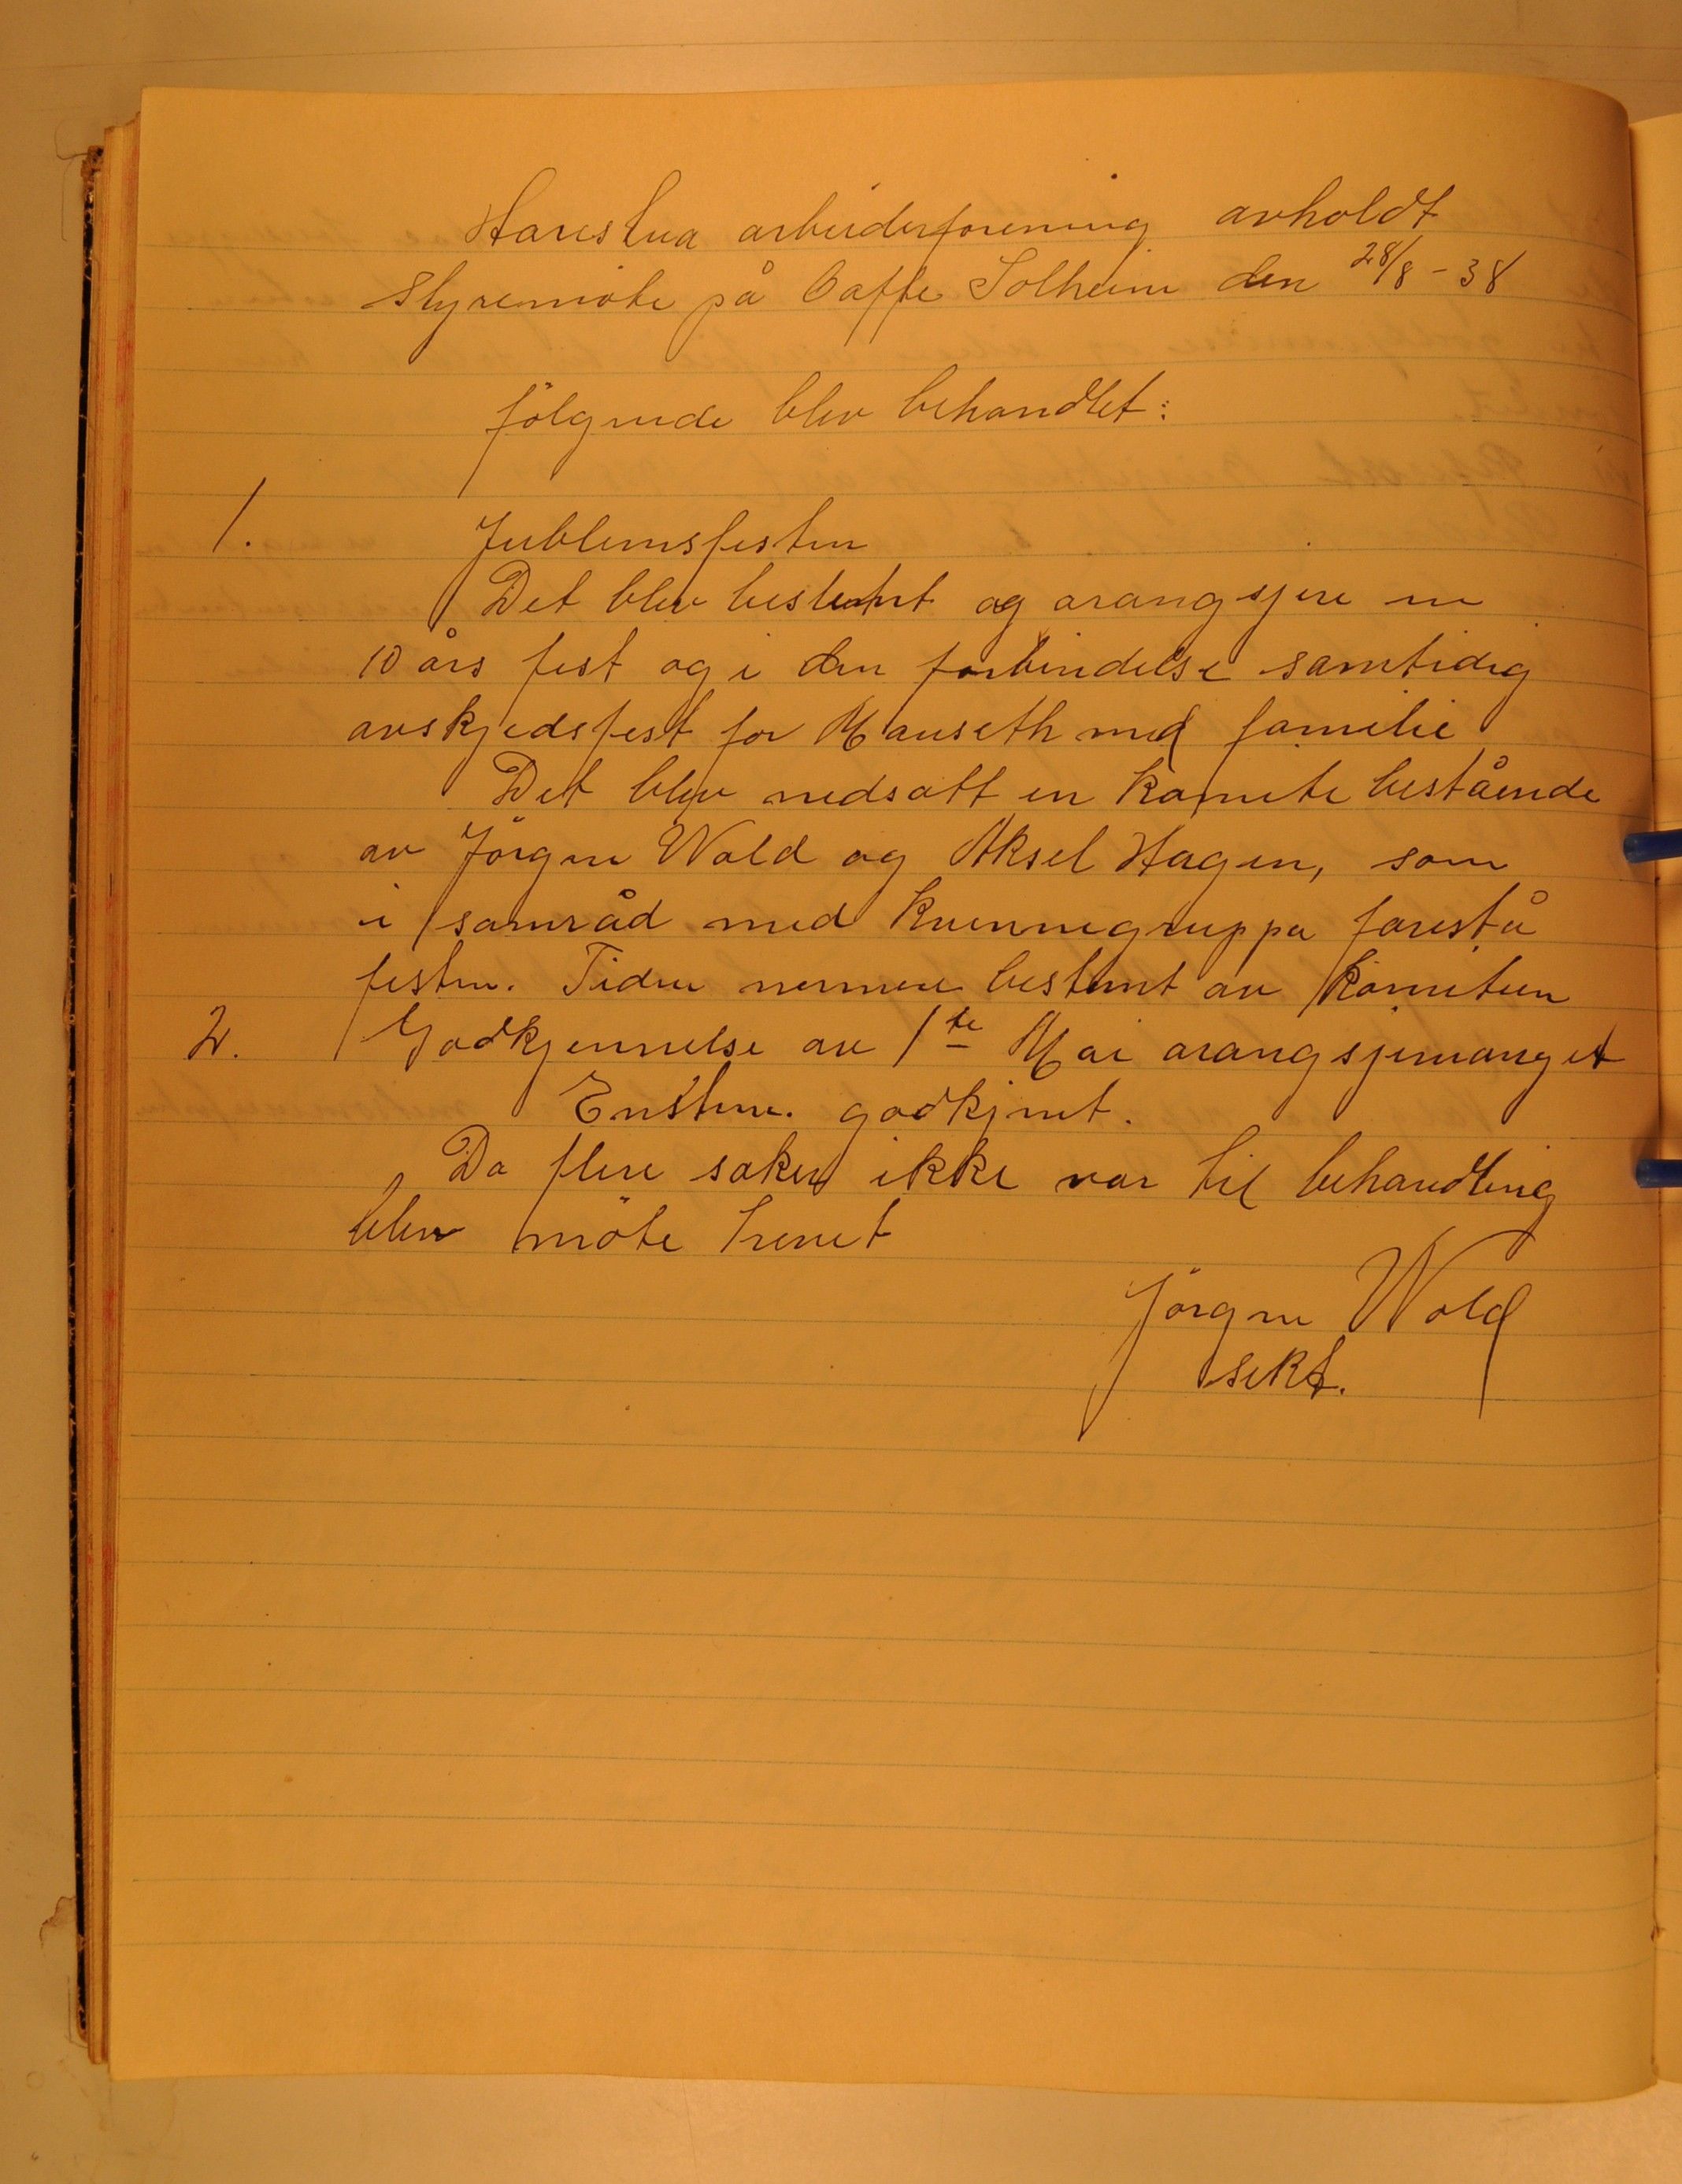 Harestua arbeiderforening avholdt
styremöte på Caffe Solheim den 28/8 - 38
fölgende blev behandlet:
1. Jublemsfesten
Det blev bestemt og arangsjere en
10 års fest og i den forbindelse samtidig
avskjedsfest for Mauseth med familie
Det blev nedsatt en komite bestående
av Jörgen Wold og Aksel Hagen, som
i samråd med kvinnegruppa forestå
festen. Tiden nermere bestemt av komiteen
2. Godkjennelse av 1te Mai arangsjemanget
Enstem. godkjent.
Da flere saker ikke var til behandling
blev möte hevet
Jörgen Wold
sekt.